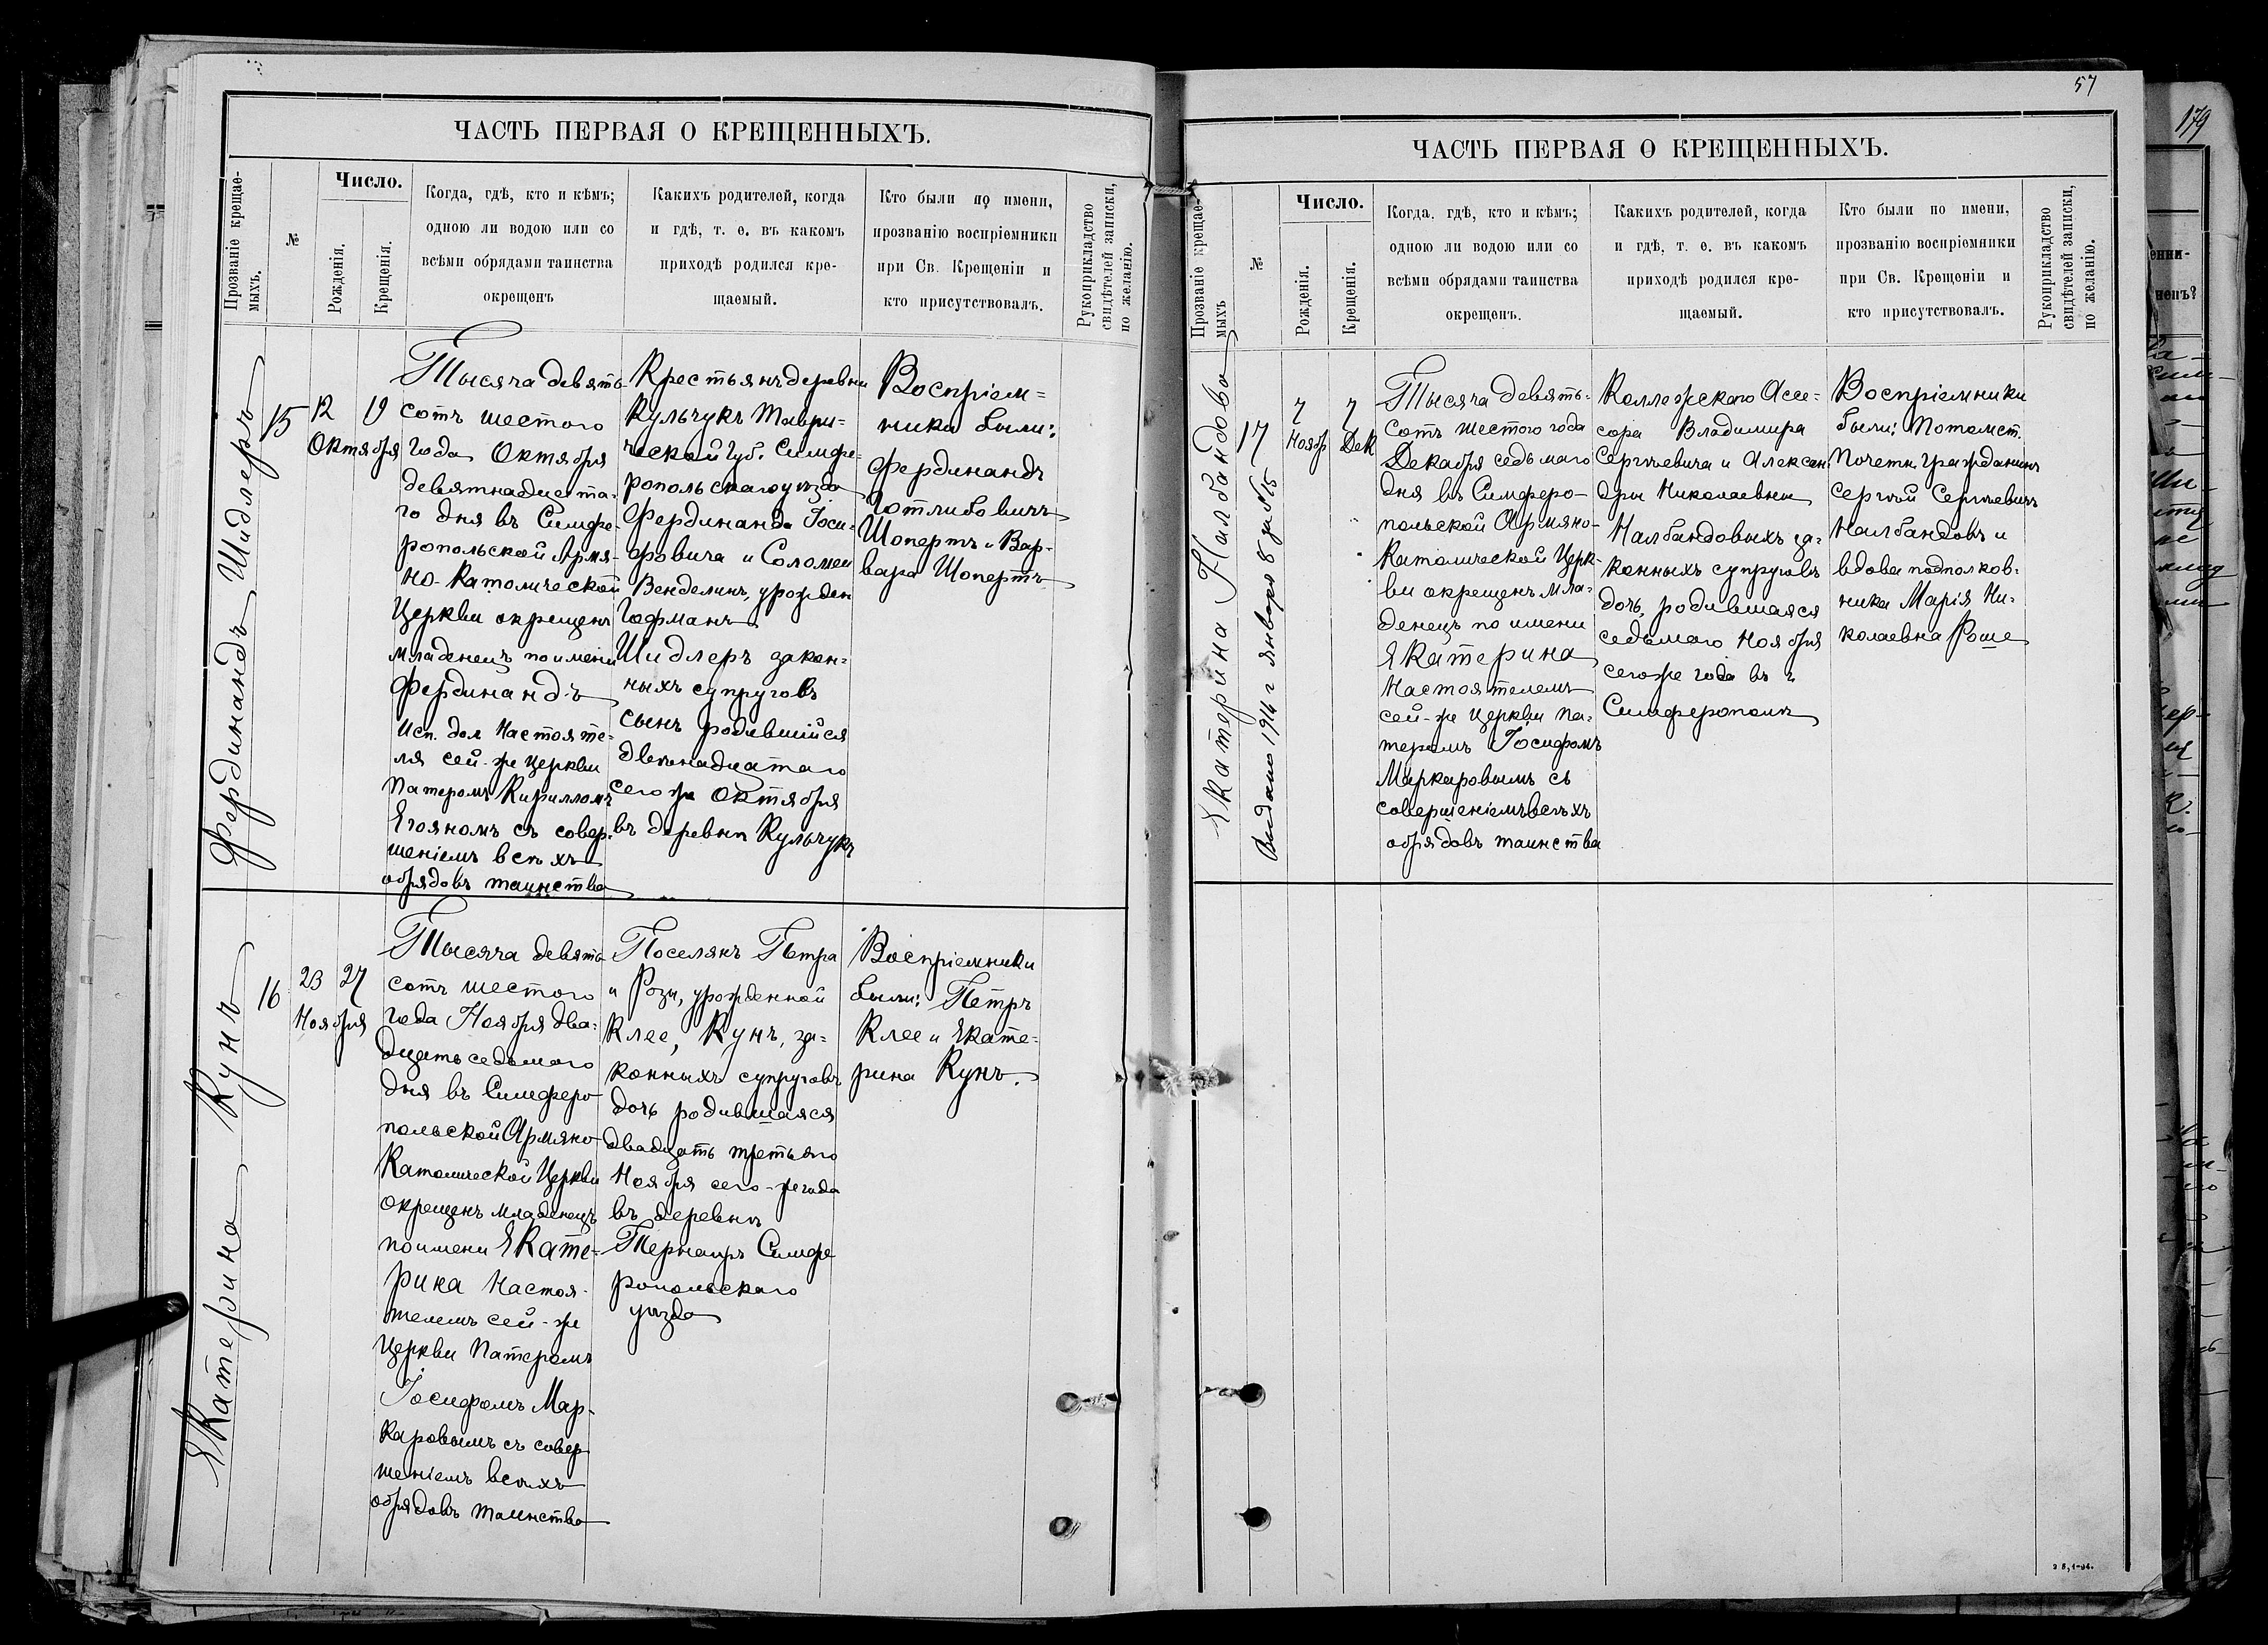 ЧАСТЬ ПЕРВАЯ О КРЕЩЕННЫХЪ.
Прозваніе крещае-
мыхъ.
№
Число.
Рожденія.
Крещенія.
Когда, гдѣ, кто и кѣмъ;
одною ли водою или со
всѣми обрядами таинства
окрещенъ
Какихъ родителей, когда
и гдѣ, т. е. въ какомъ
приходѣ родился кре-
щаемый.
Кто были по имени,
прозванію воспріемники
при Св. Крещеніи и
кто присутствовалъ.
Рукоприкладство
свидѣтелей записки,
по желанію.
Фердинандъ Шидлеръ
15
12 19
Октября
Тысяча девять-
сотъ шестого
года Октября
девятнадцата-
го дня въ Симфе-
ропольской Армя-
но-Католической
Церкви окрещенъ
младенецъ по имени
Фердинандъ
Исп. дол Настояте-
ля сей-же церкви
Патеромъ Кирилломъ
Егояномъ съ совер-
шеніемъ всѣхъ
обрядовъ таинства
Крестьянъ деревни
Кульчукъ Таври-
ческой Губ. Симфе-
ропольскаго уѣзда
Фердинанда Іоси-
фовича и Соломеи
Венделинъ, урожден
Гофманъ
Шидлеръ закон-
ныхъ супруговъ
сынъ родившійся
двѣнадцатаго
сего же Октября
въ деревнѣ Кульчукъ
Воспріем-
ники были:
Фердинандъ
Готлибовичъ
Шопертъ и Вар-
вара Шопертъ
Екатерина Кунъ
16
23 27
Ноября
Тысяча девять
сотъ шестого
года Ноября два-
дцать седьмого
дня въ Симферо
польской Армяно
Католической Церкви
окрещенъ младенецъ
по имени Екате-
рина Настоя-
телемъ сей-же
Церкви Патеромъ
Іосифомъ Мар-
каровымъ съ совер
шеніемъ всѣхъ
обрядовъ таинства
Поселянъ Петра
и Розы, урожденной
Клее, Кунъ, за-
конныхъ супруговъ
дочь родившаяся
двадцать третьяго
Ноября сего-же года
въ деревнѣ
Симфе
ропольскаго
уѣзда
Воспріемники
были: Петръ
Клее и Екате-
рина Кунъ.
57
ЧАСТЬ ПЕРВАЯ О КРЕЩЕННЫХЪ.
Прозваніе крещае-
мыхъ
№
Число.
Рожденія.
Крещенія.
Когда. гдѣ, кто и кѣмъ;
одною ли водою или со
всѣми обрядами таинства
окрещенъ.
Какихъ родителей, когда
и гдѣ, т. е. въ какомъ
приходѣ родился кре-
щаемый.
Кто были по имени,
прозванію воспріемники
при Св. Крещеніи и
кто присутствовалъ.
Рукоприкладство
свидѣтелей записки,
по желанію.
Екатерина Налбандова
Выдано 1914 г Января 8 дня №15
17
7 7
Ноябр Дек
Тысяча девять-
сотъ шестого года
Декабря седьмаго
дня въ Симферо-
польской Армяно-
Католической Церк-
ви окрещенъ мла-
денецъ по имени
Екатерина
Настоятелемъ
сей-же Церкви Па-
теромъ Іосифомъ
Маркаровымъ съ
совершеніемъ всѣхъ
обрядовъ таинства
Коллежскаго Ассе-
сора Владимира
Сергѣевича и Алексан
дры Николаевны
Налбандовыхъ за-
конныхъ супруговъ
дочь, родившаяся
седьмаго Ноября
сего же года въ г.
Симферополѣ
Воспріемники
были: Потомст.
Почетн. Гражданинъ
Сергѣй Сергѣевичъ
Налбандовъ и
вдова подполков-
ника Марія Ни-
колаевна Роше
179